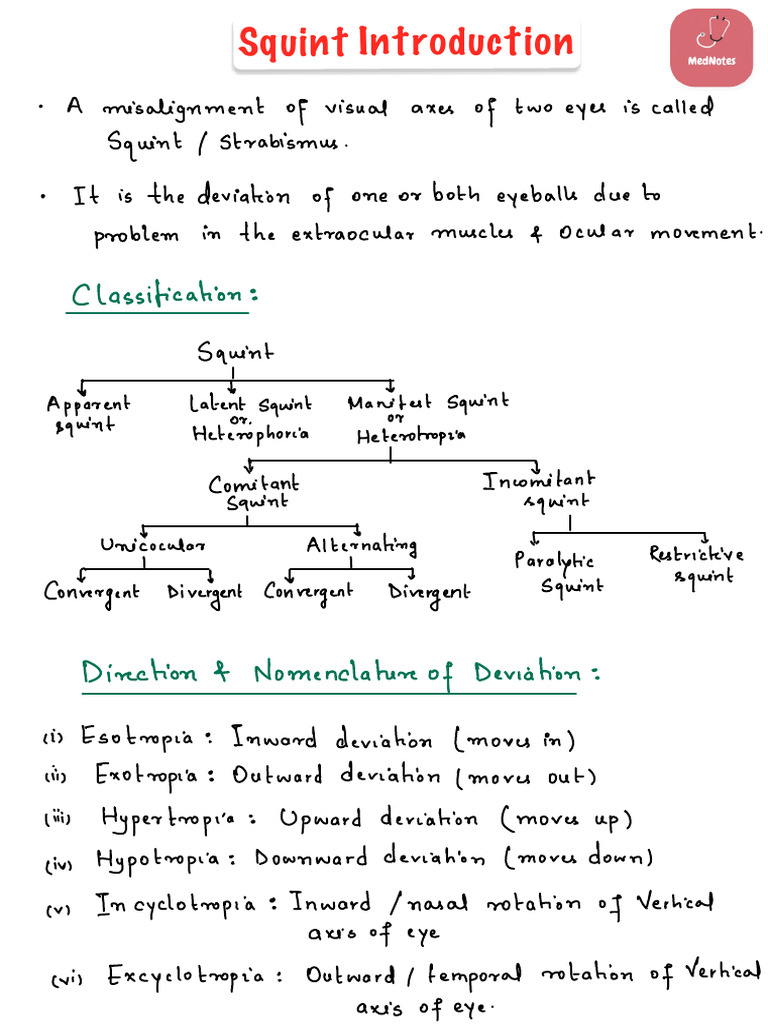 Squint Introduction
MedNotes
• A misalignment of visual axes of two eyes is called
Squint / Strabismus.
• It is the deviation of one or both eyeballs due to
problem in the extraocular muscles & Ocular movement.
Classification:
Squint
Apparent squint
Latent Squint or. Heterophoria
Manifest Squint or Heterotropia
Comitant Squint
Incomitant squint
Unicocular
Alternating
Paralytic Squint
Restrictive squint
Convergent
Divergent
Convergent
Divergent
Direction & Nomenclature of Deviation:
(i) Esotropia: Inward deviation (moves in)
(ii) Exotropia: Outward deviation (moves out)
(iii) Hypertropia: Upward deviation (moves up)
(iv) Hypotropia: Downward deviation (moves down)
(v) Incyclotropia: Inward / nasal rotation of Vertical
axis of eye
(vi) Excyclotropia: Outward / temporal rotation of Vertical
axis of eye.